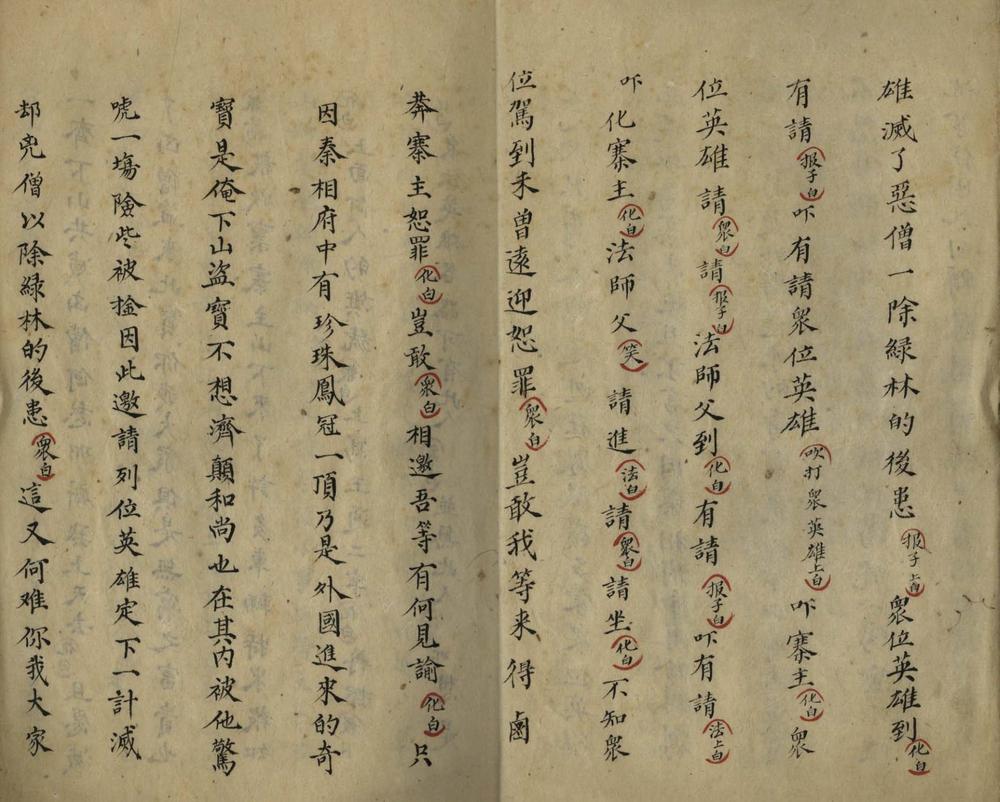 雄滅了惡僧一除綠林的後患報子上白眾位英雄到化白
有請報子白吓有請眾位英雄吹打眾英雄上白吓寨主化白眾
位英雄請眾白請報子白法師父到化白有請報子白吓有請法上白
吓化寨主化白法師父笑請進法白請眾白請坐化白不知眾
位駕到未曾遠迎恕罪眾白豈敢我等來得鹵
莽寨主恕罪化白豈敢眾白相邀吾等有何見諭化白只
因秦相府中有珍珠鳳冠一頂乃是外國進來的奇
寶是俺下山盜寶不想濟顛和尚也在其內被他驚
唬一塲險些被擒因此邀請列位英雄定下一計滅
却兇僧以除綠林的後患眾白這又何难你我大家